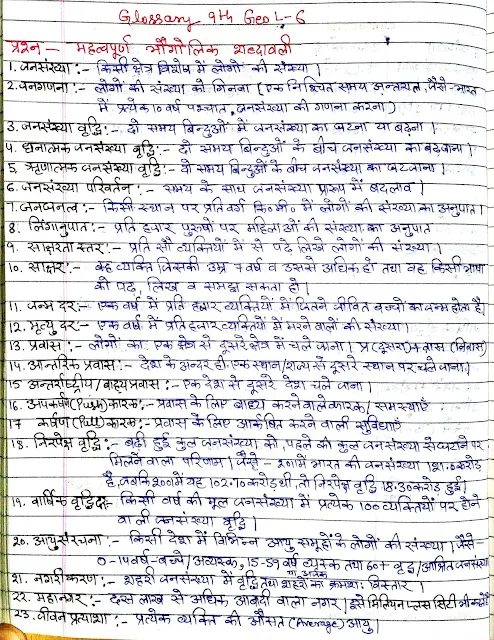 Glossary 9th Geo L-6
प्रश्न - महत्वपूर्ण भौगोलिक शब्दावली
1. जनसंख्या :- किसी क्षेत्र विशेष में लोगों की संख्या |
2. जनगणना :- लोगों की संख्या को गिनना (एक निश्चित समय अन्तराल, जैसे - भारत
में प्रत्येक 10 वर्ष पश्चात, जनसंख्या की गणना करना)
3. जनसंख्या वृद्धि :- दो समय बिन्दुओं में जनसंख्या का घटना या बढ़ना |
4. धनात्मक जनसंख्या वृद्धि :- दो समय बिन्दुओं के बीच जनसंख्या का बढ़जाना |
5. ऋणात्मक जनसंख्या वृद्धि :- दो समय बिन्दुओं के बीच जनसंख्या का घटजाना |
6. जनसंख्या परिवर्तन :- समय के साथ जनसंख्या प्रारूप में बदलाव |
7. जनघनत्व :- किसी स्थान पर प्रतिवर्ग कि०मी० में लोगों की संख्या का अनुपात |
8. लिंगानुपात :- प्रति हजार पुरुषों पर महिलाओं की संख्या का अनुपात
9. साक्षरता स्तर :- प्रति सौ व्यक्तियों में से पढ़े लिखे लोगों की संख्या |
10. साक्षर :- वह व्यक्ति जिसकी उम्र 7 वर्ष व उससे अधिक हो तथा वह किसी भाषा
को पढ़, लिख व समझ सकता हो |
11. जन्म दर :- एक वर्ष में प्रति हजार व्यक्तियों में जितने जीवित बच्चों का जन्म होता है |
12. मृत्यु दर :- एक वर्ष में प्रति हजार व्यक्तियों में मरने वालों की संख्या |
13. प्रवास :- लोगों का एक क्षेत्र से दूसरे क्षेत्र में चले जाना | प्र (दूसरा) + वास (निवास)
14. आन्तरिक प्रवास :- देश के अन्दर ही एक स्थान/राज्य से दूसरे स्थान पर चले जाना |
15 अन्तर्राष्ट्रीय / बाह्य प्रवास :- एक देश से दूसरे देश चले जाना |
16. अपकर्षण (Push) कारक :- प्रवास के लिए बाध्य करने वाले कारक / समस्याएँ
17 कर्षण (Pull) कारक :- प्रवास के लिए आकर्षित करने वाली सुविधाएँ
18. निरपेक्ष वृद्धि :- बढ़ी हुई कुल जनसंख्या को, पहले की कुल जनसंख्या से घटाने पर
मिलने वाला परिणाम | जैसे - 2011 में भारत की जनसंख्या 121.0 करोड़
है, जबकि 2001 में यह 102.70 करोड़ थी, तो निरपेक्ष वृद्धि 18.30 करोड़ हुई |
19. वार्षिक वृद्धि दर :- किसी वर्ष की मूल जनसंख्या में प्रत्येक 100 व्यक्तियों पर होने
वाली जनसंख्या वृद्धि |
20. आयु संरचना :- किसी देश में विभिन्न आयु समूहों के लोगों की संख्या | जैसे -
0-14 वर्ष - बच्चे / अवयस्क, 15-59 वर्ष व्यस्क तथा 60+ वृद्ध / आश्रित जनसंख्या
21. नगरीकरण :- शहरी जनसंख्या में वृद्धि तथा शहरों का क्रमशः विस्तार
22. महानगर :- दस लाख से अधिक आबादी वाला नगर | इसे मिलियन प्लस सिटी भी कहते हैं
23. जीवन प्रत्याशा :- प्रत्येक व्यक्ति की औसत (Average) आयु |